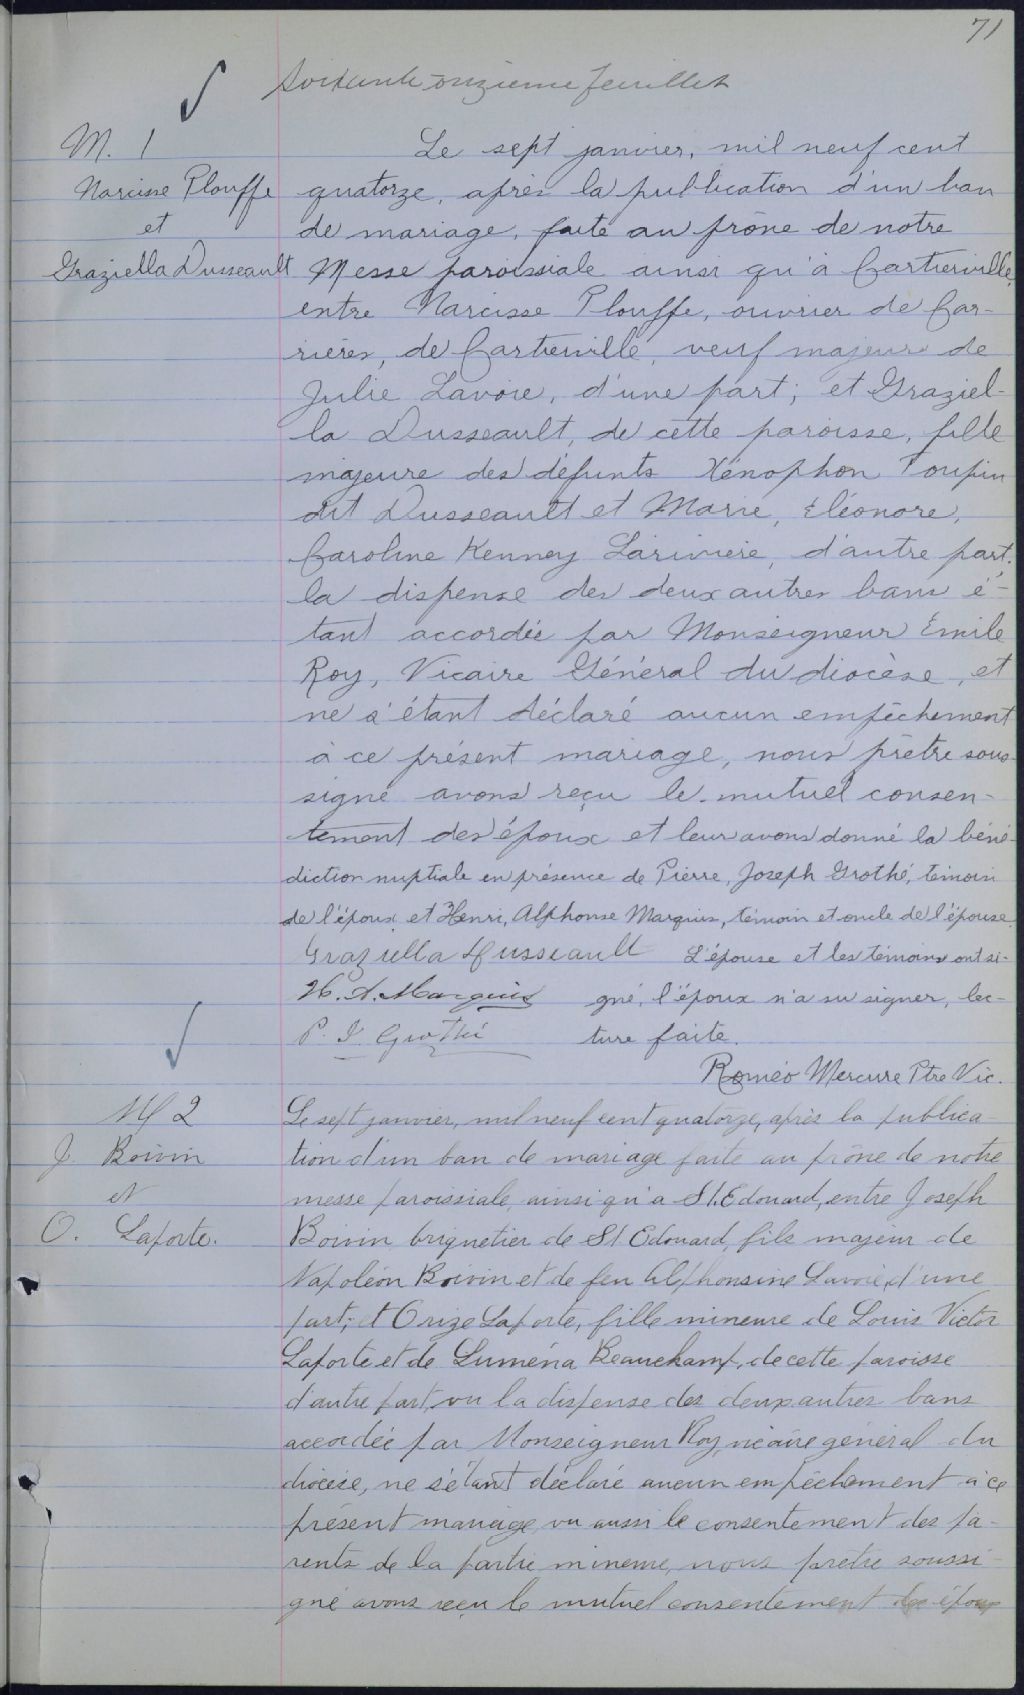 71
Soixante-onzième feuillet
M. 1
Narcisse Plouffe
et
Graziella Dusseault
Le sept janvier, mil neuf cent
quatorze, après la publication d'un ban
de mariage, faite au prône de notre
Messe paroissiale ainsi qu'à Cartierville,
entre Narcisse Plouffe, ouvrier de Car-
rières, de Cartierville, veuf majeur de
Julie Lavoie, d'une part; et Graziel-
la Dusseault, de cette paroisse, fille
majeure des défunts Xénophon Toupin
dit Dusseault et Marie, Eléonore,
Caroline Kenney Larivière, d'autre part.
la dispense des deux autres bans é-
tant accordée par Monseigneur Emile
Roy, Vicaire Général du diocèse, et
ne s'étant déclaré aucun empêchement
à ce présent mariage, nous prêtre sous-
signé avons reçu le mutuel consen-
tement des époux et leur avons donné la béné-
diction nuptiale en présence de Pierre, Joseph Grothé, témoin
de l'époux et Henri, Alphonse Marquis, témoin et oncle de l'épouse.
Graziella Dusseault L'épouse et les témoins ont si-
H. A. Marquis gné, l'époux n'a su signer, lec-
P. J. Grothé ture faite.
Roméo Mercure Ptre Vic.
M 2
J. Boivin
et
O. Laporte.
Le sept janvier, mil neuf cent quatorze, après la publica-
tion d'un ban de mariage faite au prône de notre
messe paroissiale, ainsi qu'a St. Edouard, entre Joseph
Boivin briquetier de St Edouard, fils majeur de
Napoléon Boivin et de feu Alphonsine Lavoie, d'une
part; et Orize Laporte, fille mineure de Louis Victor
Laporte et de Luména Beauchamp, de cette paroisse
d'autre part, vu la dispense des deux autres bans
accordée par Monseigneur Roy, vicaire général du
diocèse, ne s'étant déclaré aucun empêchement à ce
présent mariage, vu aussi le consentement des pa-
rents de la partie mineure, nous prêtre soussi-
gné avons reçu le mutuel consentement des époux